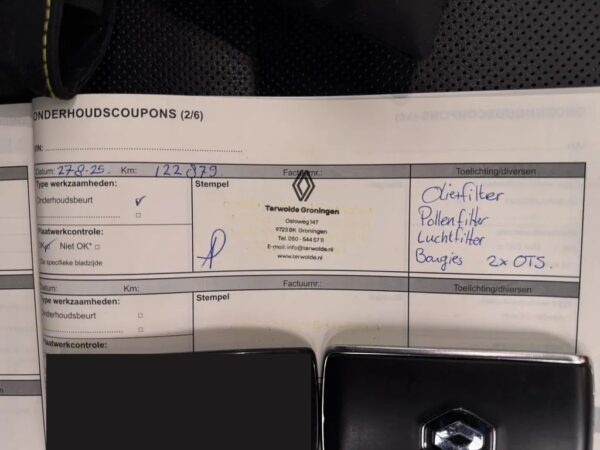 ONDERHOUDSCOUPONS (2/6)
Datum: 27-8-25. Km: 122 879. Factuurnr.: Toelichting/diversen
Type werkzaamheden: Stempel
Onderhoudsbeurt ✓
Terwolde Groningen
Osloweg 147
9723 BK Groningen
Tel. 050 - 544 57 11
E-mail: info@terwolde.nl
www.terwolde.nl
Oliefilter
Pollenfilter
Luchtfilter
Bougies 2x OTS.
Plaatwerkcontrole:
Niet OK* □
Zie specifieke bladzijde
Datum: Km: Factuurnr.: Toelichting/diversen
Type werkzaamheden: Stempel
Onderhoudsbeurt □
□
Plaatwerkcontrole: